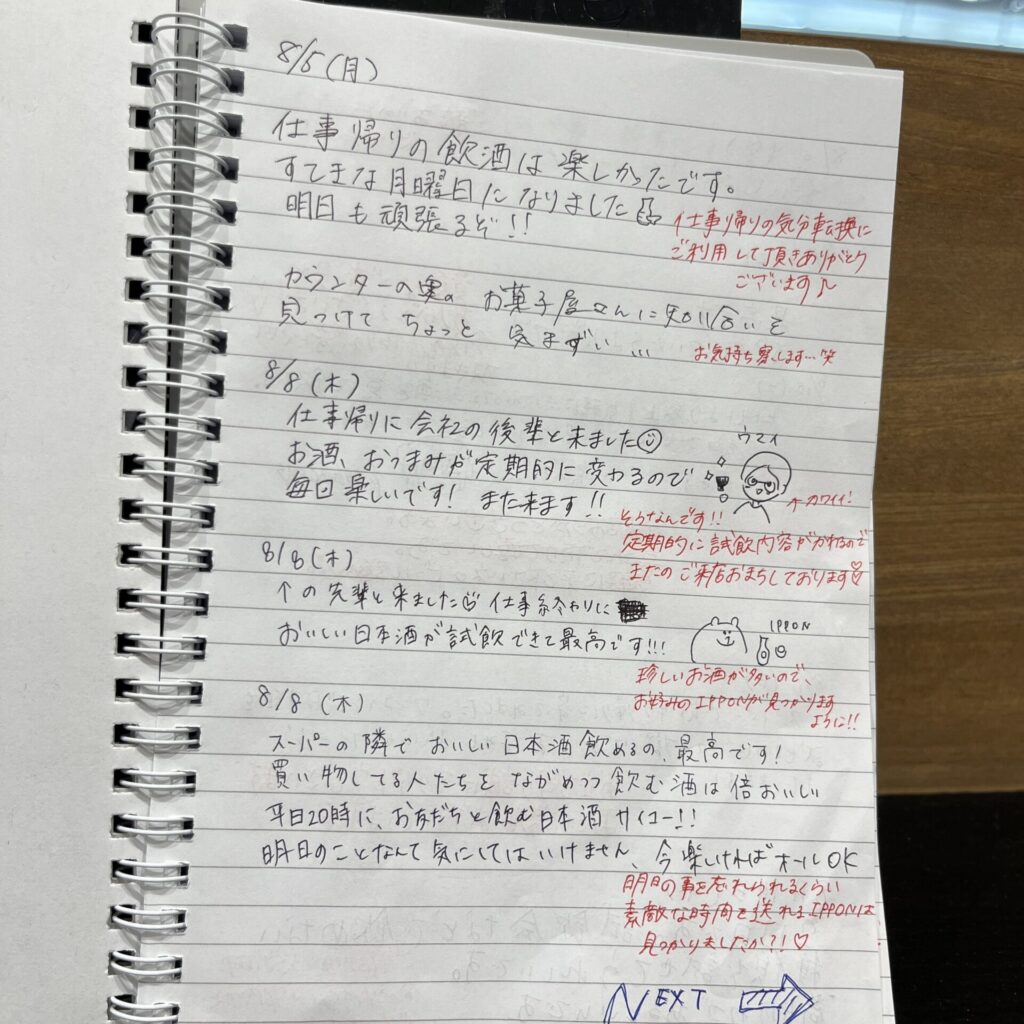 8/5(月)
仕事帰りの飲酒は楽しかったです。
すてきな月曜日になりました
明日も頑張るぞ!!
仕事帰りの気分転換に
ご利用して頂きありがとう
ございます♪
カウンターの奥の お菓子屋さんに知り合いを
見つけて ちょっと 気まずい...
お気持ち察します…笑
8/8(木)
仕事帰りに会社の後輩と来ました☺
お酒、おつまみが定期的に変わるので
毎回楽しいです! また来ます!!
ウマイ
←カワイイ!
そうなんです!!
定期的に試飲内容がかわるので
またのご来店おまちしております♡
8/8(木)
↑の先輩と来ました☺ 仕事終わりに
おいしい日本酒が試飲できて最高です!!!
IPPON
珍しいお酒が多いので、
お好みのIPPONが見つかります
ように!!
8/8 (木)
スーパーの隣で おいしい日本酒飲めるの、最高です!
買い物してる人たちを ながめつつ飲む酒は倍おいしい
平日20時に、お友だちと飲む日本酒サイコー!!
明日のことなんて気にしてはいけません、今楽しければオールOK
明日の事を忘れられるくらい
素敵な時間を送れるIPPONは
見つかりましたか?!♡
NEXT ⇒